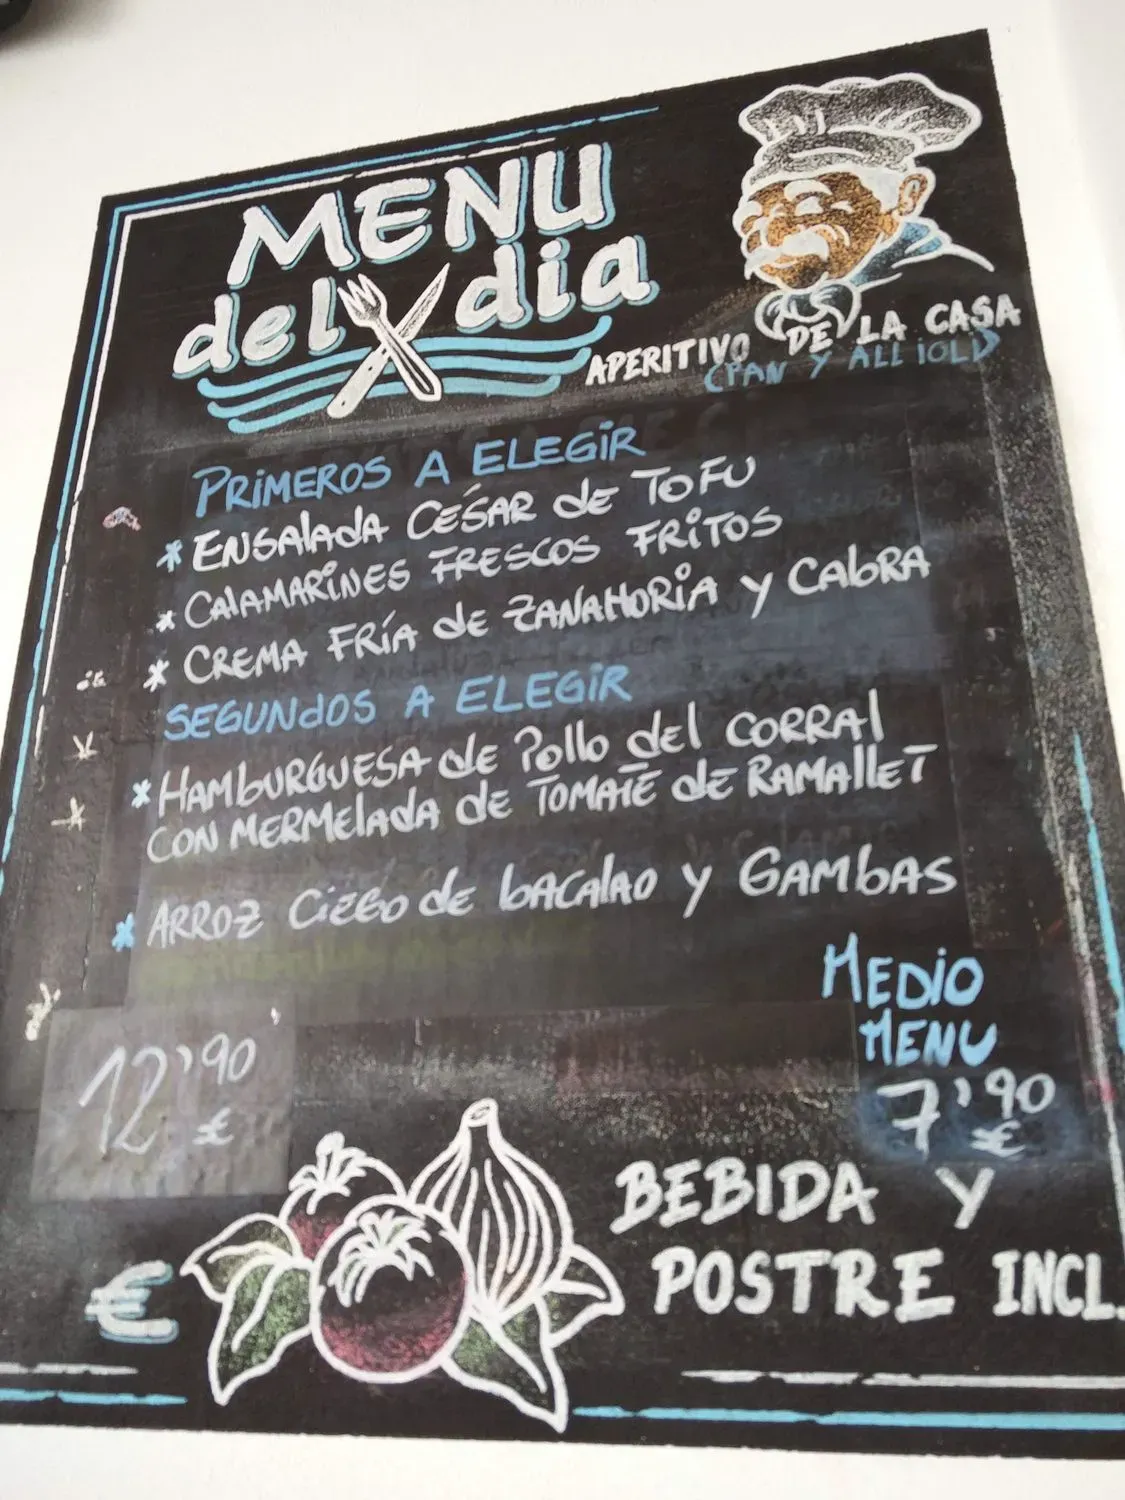 MENU
del dia
APERITIVO DE LA CASA
(PAN Y ALLIOLI)
PRIMEROS A ELEGIR
* ENSALADA CÉSAR de TOFU
* CALAMARINES FRESCOS FRITOS
* CREMA FRÍA de ZANAHORIA Y CABRA
SEGUNDOS A ELEGIR
* HAMBURGUESA de Pollo del CORRAL
CON MERMELADA de TOMATE de RAMALLET
* ARROZ CIEGO de BACALAO Y GAMBAS
MEDIO
MENU
12'90
€
7'90
€
BEBIDA Y
POSTRE INCL.
€